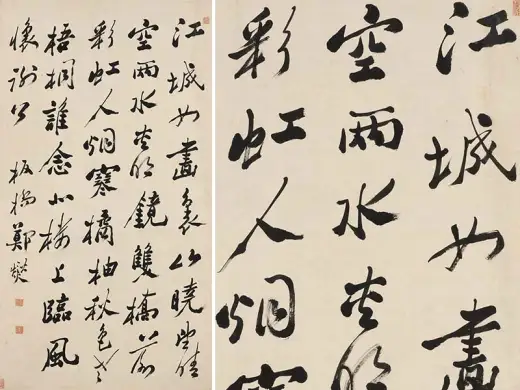 江城如畫裏山曉望晴
空兩水夾明鏡雙橋落
彩虹人烟寒橘柚秋色老
梧桐誰念北樓上臨風
懷謝公 板橋鄭燮
江城如畫
空兩水夾明
彩虹人烟寒